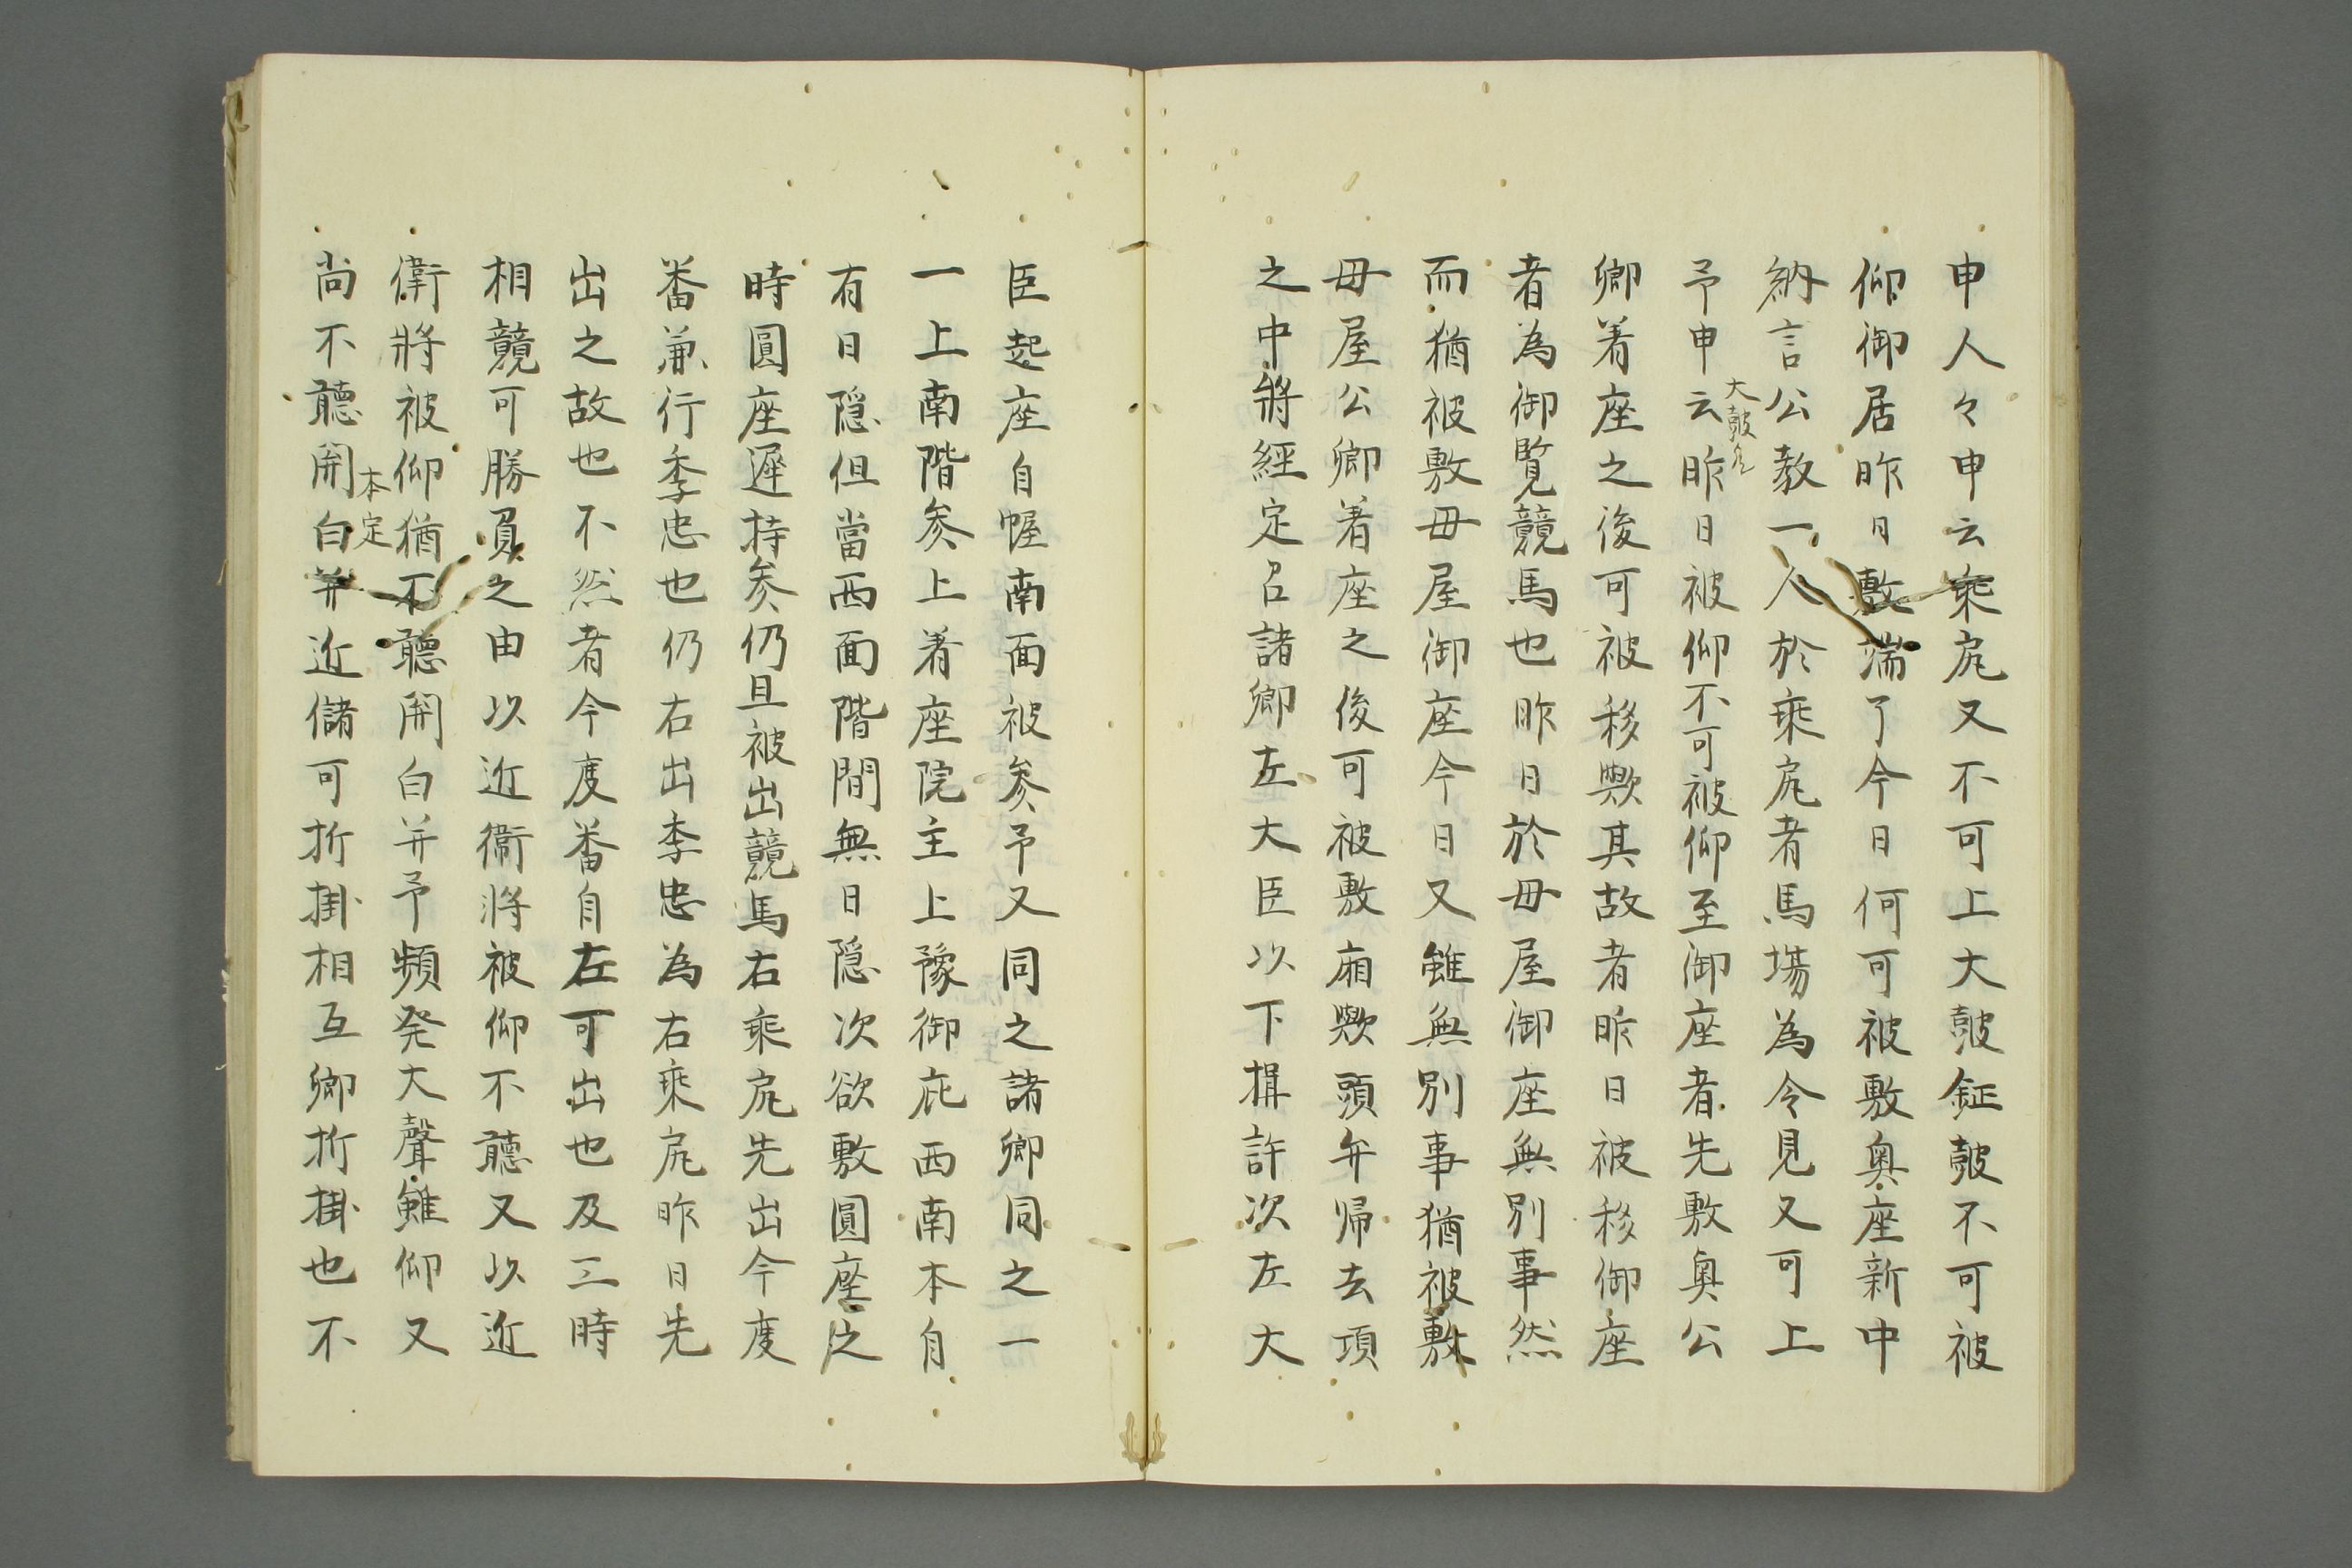 申人々申云乘尻又不可上大皷鉦皷不可被
仰御居昨日敷端了今日何可被敷奥座新中
納言公教一人於乘尻者馬場為令見又可上
大皷
予申云昨日被仰不可被仰至御座者先敷奥公
卿着座之後可被移歟其故者昨日被移御座
者為御覧競馬也昨日於母屋御座無別事然
而猶被敷母屋御座今日又雖無別事猶被敷
母屋公卿着座之後可被敷廂歟頭弁帰去項
之中將經定召諸卿左大臣以下揖許次左大
臣起座自幄南面被参予又同之諸卿同之一
一上南階参上着座院主上豫御庇西南本自
有日隠但當西面階間無日隠次欲敷圓座之
時圓座遲持参仍且被出競馬右乘尻先出今度
番兼行季忠也仍右出季忠為右乘尻昨日先
出之故也不然者今度番自左可出也及三時
相競可勝負之由以近衛將被仰不聽又以近
衛將被仰猶不聽開白并予頻発大聲雖仰又
本定
尚不聽開白并近儲可折掛相互卿折掛也不